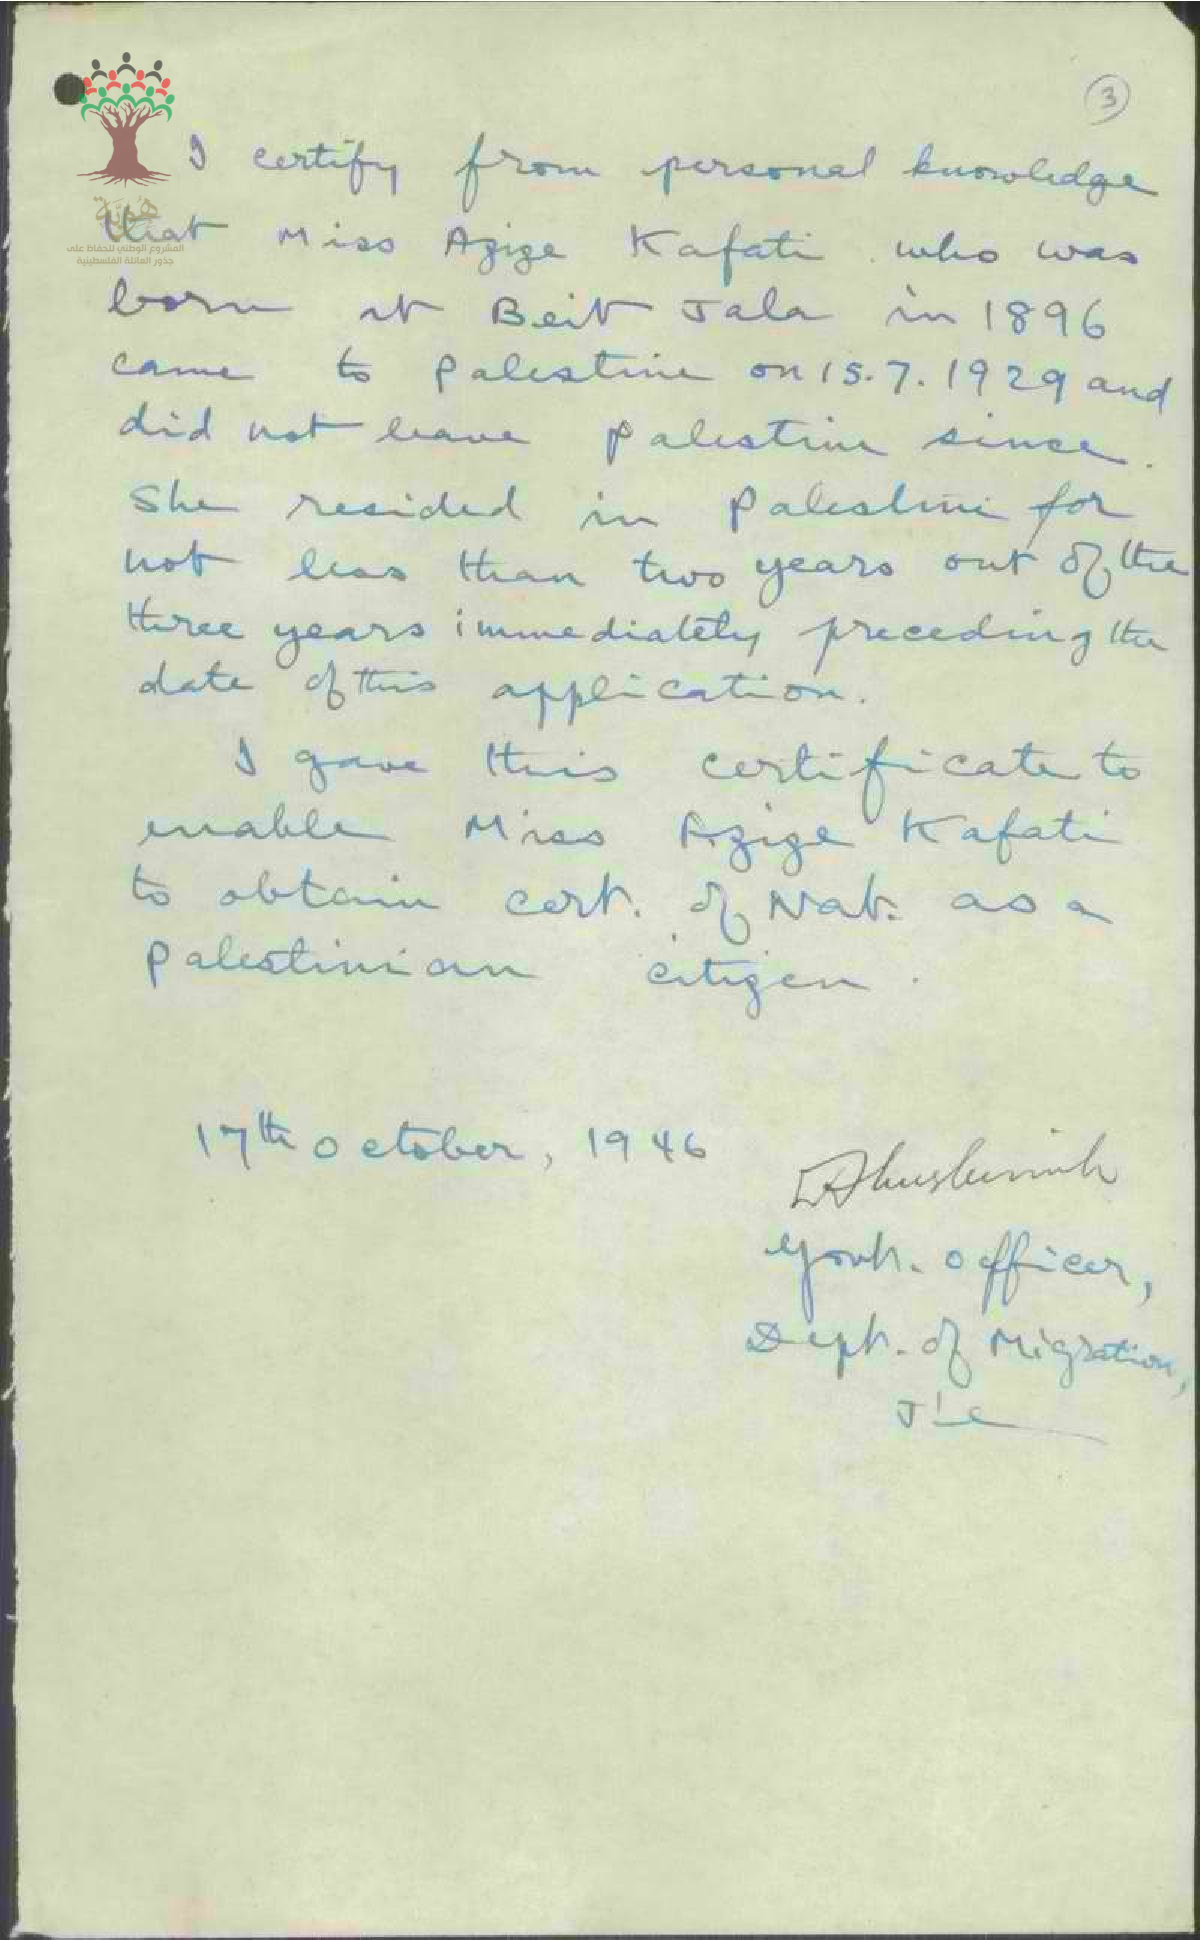 3
I certify from personal knowledge
that Miss Azize Kafati who was
born at Beit Jala in 1896
came to Palestine on 15.7.1929 and
did not leave Palestine since.
She resided in Palestine for
not less than two years out of the
three years immediately preceding the
date of this application.
I gave this certificate to
enable Miss Azize Kafati
to obtain cert. of Nat. as a
Palestinian citizen.
17th October, 1946
Govt. Officer,
Dept. of Migration,
J'lem
هُويَّة
المشروع الوطني للحفاظ على
جذور العائلة الفلسطينية